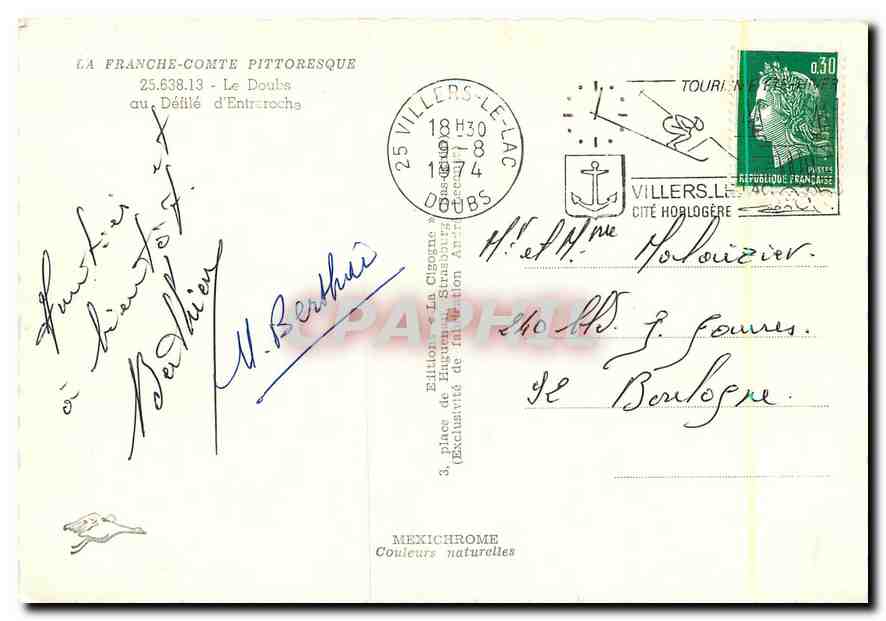 LA FRANCHE-COMTE PITTORESQUE
25.638.13 - Le Doubs
au Défilé d'Entreroche
Amitiés et
à bientôt.
M. Berthier
25 VILLERS-LE-LAC
18H30
9-8
1974
DOUBS
TOURISME
VILLERS-LE-LAC
CITÉ HORLOGÈRE
0,30
POSTES
REPUBLIQUE FRANÇAISE
Mr et Mme
240 Bld. J. Jaurès.
92 Boulogne.
Editions "La Cigogne"
3, place de Haguenau, Strasbourg
(Exclusivité de fabrication André Lecomte)
CPAPHIL
MEXICHROME
Couleurs naturelles